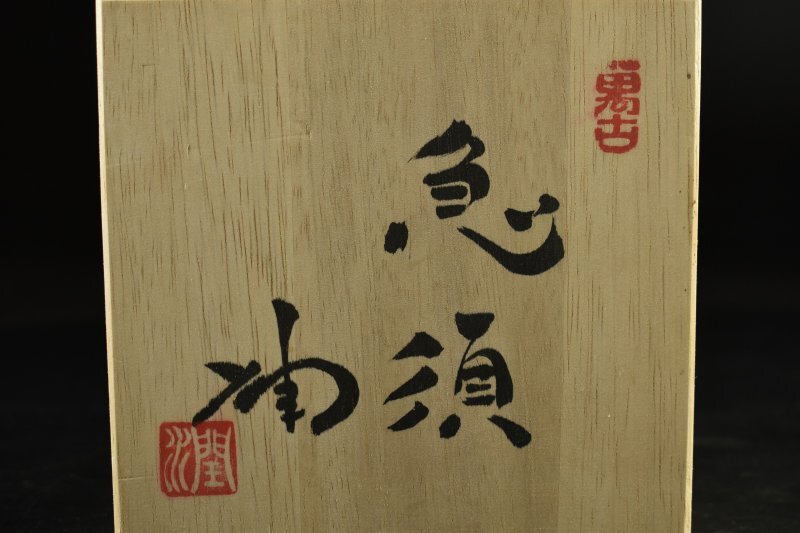 萬古
急須
潤